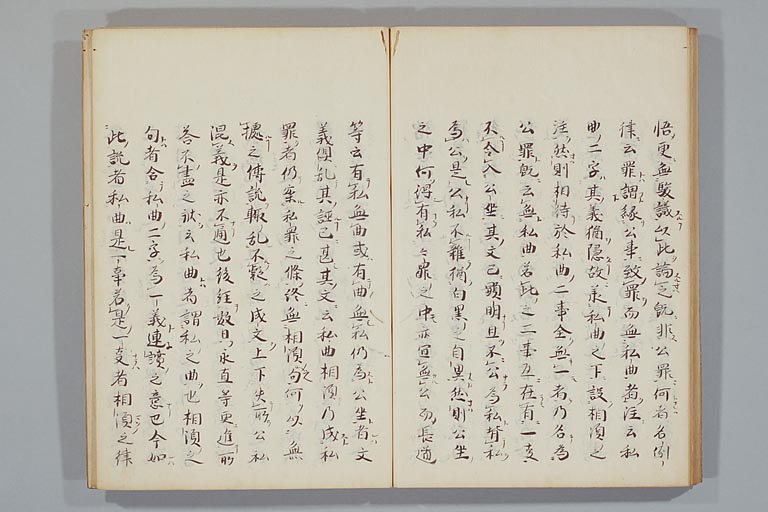 悟更無駁議以此論之既非公罪何者名例
律云罪謂緣公事致罪而無私曲者注云私
曲二字其義猶隱故於私曲之下設相須之
注然則相待於私曲二事全無一者乃名為
公罪既云無私曲若此之二事互在有一支
不令入公坐其文已顯明且不公為私背私
為公是公私不雜猶白黑之自異然則公坐
之中何得有私々罪之中亦宜無公而長道
等云有私無曲或有曲無私仍為公坐者文
義俱乱其誣已甚其文云私曲相須乃成私
罪者仍案私罪之條終無相須句何以無
之傳說輙乱不斁之成文上下失所公私
混義是亦不通也後経数日永直等更進所
答不盡之狀云私曲者謂私之曲也相須之
句者合私曲二字為一義連讀之意也今如
此說者私曲是一事若是一支者相須之律